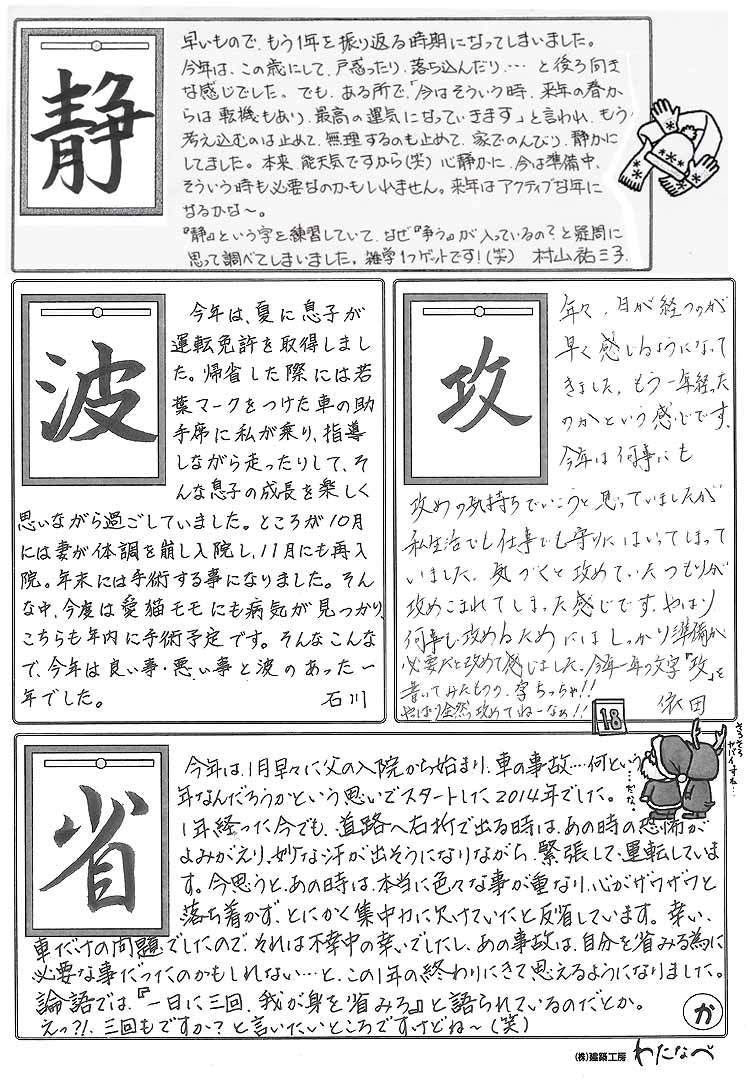 静
早いもので、もう1年を振り返る時期になってしまいました。
今年は、この歳にして、戸惑ったり、落ち込んだり、… と後ろ向き
な感じでした。でも、ある所で、「今はそういう時、来年の春か
らは転機もあり、最高の運気になっていきます」と言われ、もう
考え込むのは止めて、無理するのも止めて、家でのんびり、静かに
してました。本来、能天気ですから(笑) 心静かに、今は準備中、
そういう時も必要なのかもしれません。来年はアクティブな年に
なるかな〜。
『静』という字を練習していて、なぜ『争う』が入っているの？と疑問に
思って調べてしまいました。雑学1つゲットです！(笑) 村山祐三子
波
今年は、夏に息子が
運転免許を取得しまし
た。帰省した際には若
葉マークをつけた車の助
手席に私が乗り、指導
しながら走ったりして、そ
んな息子の成長を楽しく
思いながら過ごしていました。ところが10月
には妻が体調を崩し入院し、11月にも再入
院。年末には手術する事になりました。そん
な中、今度は愛猫モモにも病気が見つかり、
こちらも年内に手術予定です。そんなこんな
で、今年は良い事・悪い事と波のあった一
年でした。 石川
攻
年々、日が経つのが
早く感じるようになって
きました。もう一年経った
のかという感じです。
今年は何事にも
攻めの気持ちでいこうと思っていましたが
私生活でも仕事でも守りにはいってしまって
いました。気づくと攻めていたつもりが
攻めこまれてしまった感じです。やはり
何事も攻めるためにはしっかり準備が
必要だと改めて感じました。今年一年の文字『攻』を
書いてみたものの、字ちっちゃ！！
やはり全然攻めてねーなぁ！！ 依田
18
そろそろ
ヤバイすね…
…だな。
省
今年は、1月早々に父の入院から始まり、車の事故…何という
年なんだろうかという思いでスタートした、2014年でした。
1年経った今でも、道路へ右折で出る時は、あの時の恐怖が
よみがえり、妙な汗が出そうになりながら、緊張して、運転していま
す。今思うと、あの時は、本当に色々な事が重なり、心がザワザワと
落ち着かず、とにかく集中力に欠けていたと反省しています。幸い、
車だけの問題でしたので、それは不幸中の幸いでしたし、あの事故は、自分を省みる為に
必要な事だったのかもしれない…と、この1年の終わりにきて思えるようになりました。
論語では、『一日に三回、我が身を省みろ』と語られているのだとか。
えっ?!、三回もですか？と言いたいところですけどね〜(笑)
か
(株)建築工房 わたなべ